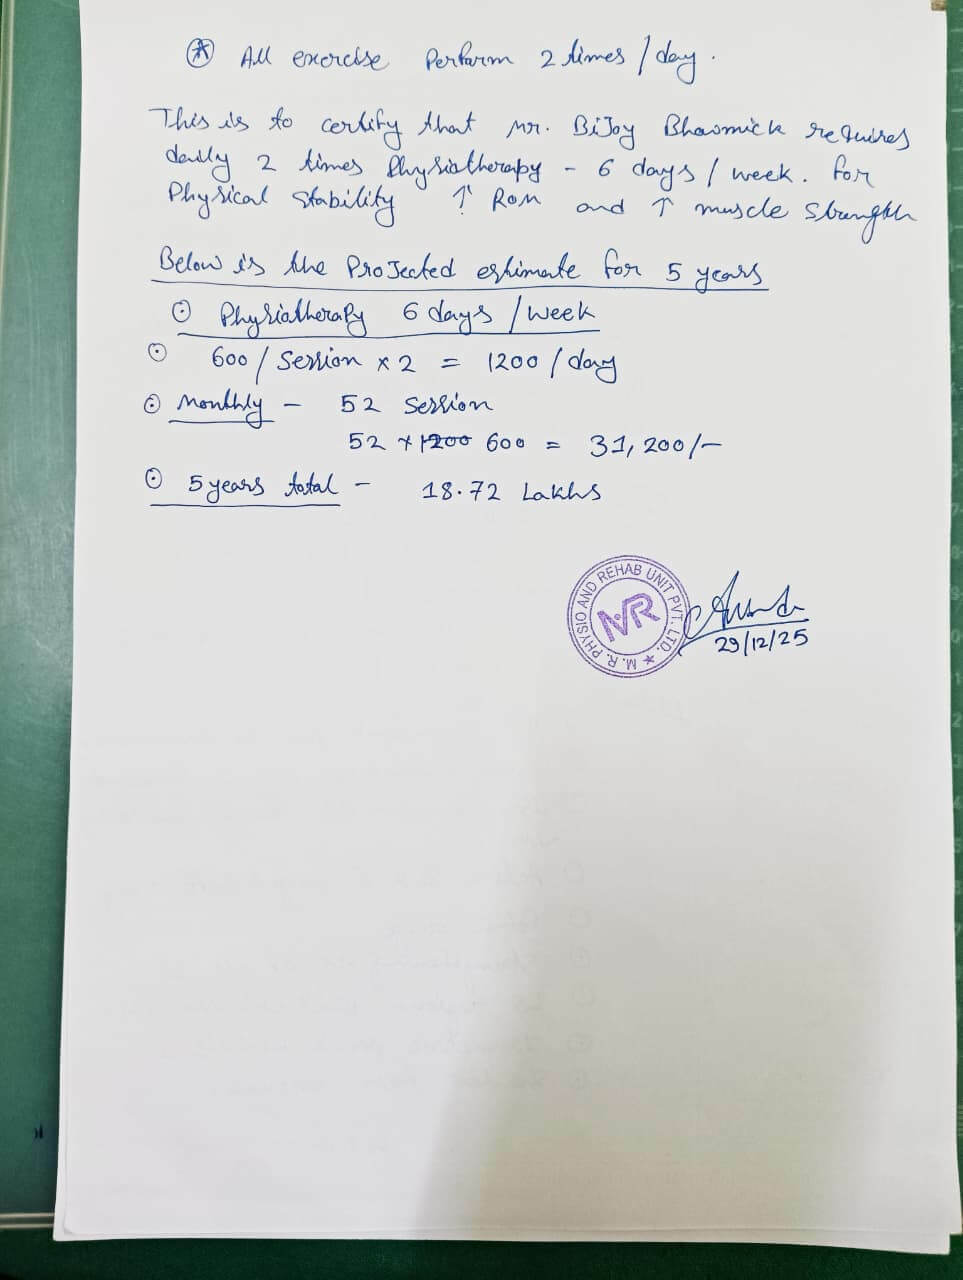 * All exercise Perform 2 times / day.
This is to certify that Mr. BiJoy Bhowmick requires
daily 2 times Physiotherapy - 6 days / week. for
Physical stability ↑ ROM and ↑ muscle strength
Below is the ProJected estimate for 5 years
⊙ Physiotherapy 6 days / week
⊙ 600 / Session × 2 = 1200 / day
⊙ Monthly - 52 Session
52 × 1200 600 = 31,200/-
⊙ 5 years total - 18.72 Lakhs
M. R. PHYSIO AND REHAB UNIT PVT. LTD. ★
MR
29/12/25